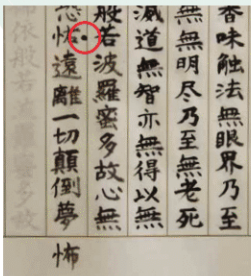 香味触法無眼界乃
無無明尽乃至無老死
滅道無智亦無得以無
般若波羅密多故心無
恐怯遠離一切顛倒夢
依般若多故
怖